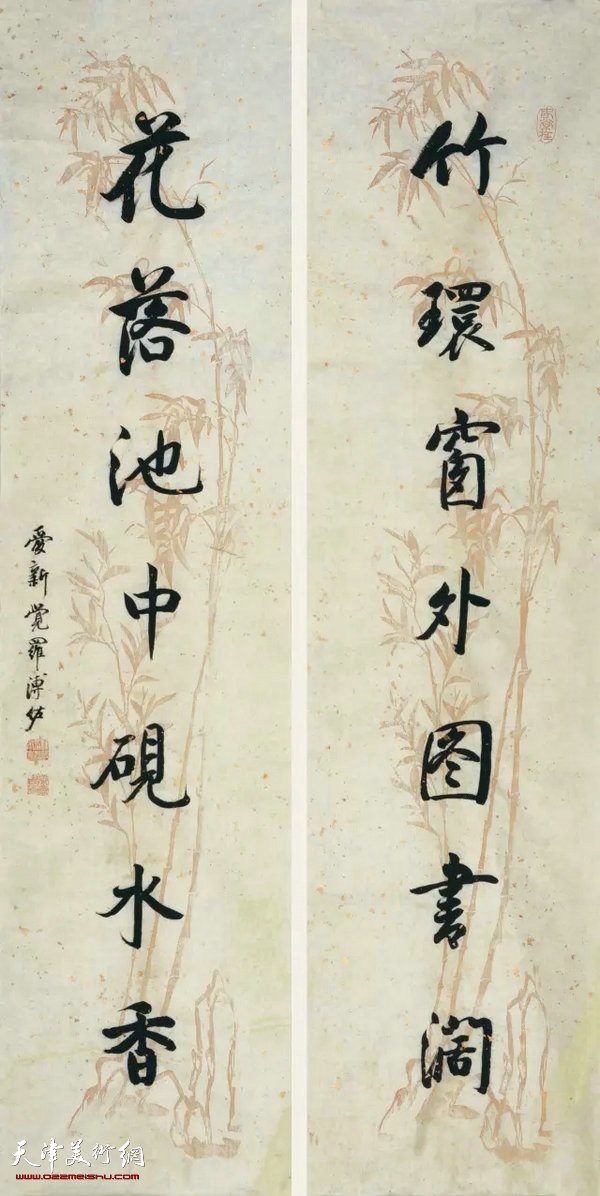 竹環窗外图書濶
花落池中硯水香
愛新覺羅溥佐
天津美術網
www.022meishu.com